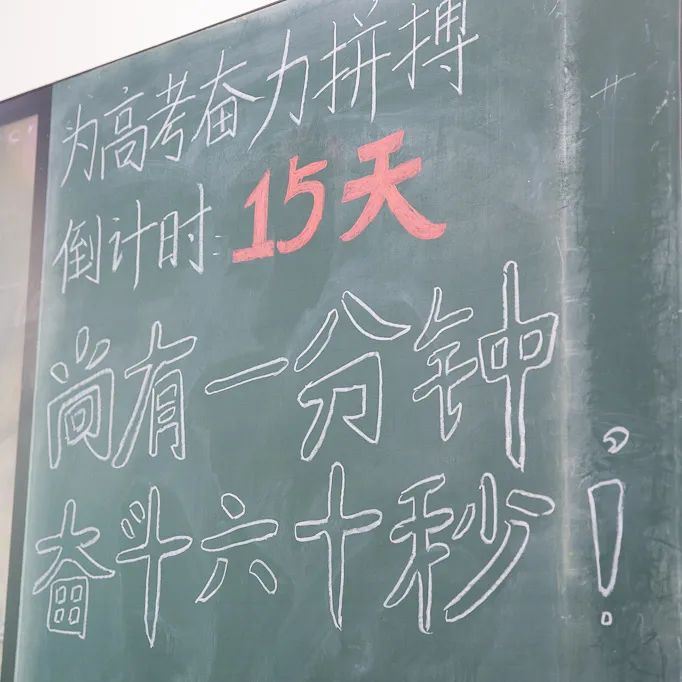 为高考奋力拼搏
倒计时:15天
尚有一分钟,
奋斗六十秒!